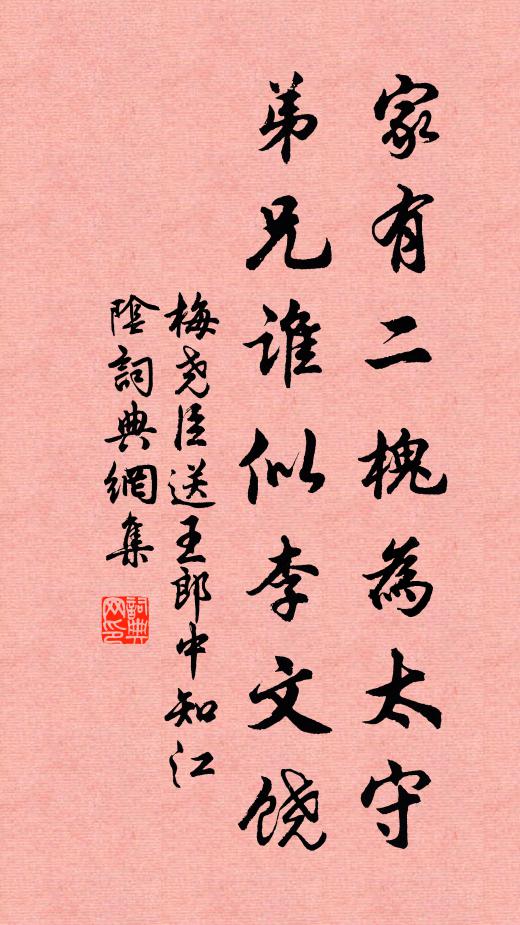 家有二槐為太守
弟兄谁似李文饶
梅尧臣送王郎中知江
陰詞典網集
詞典
网印